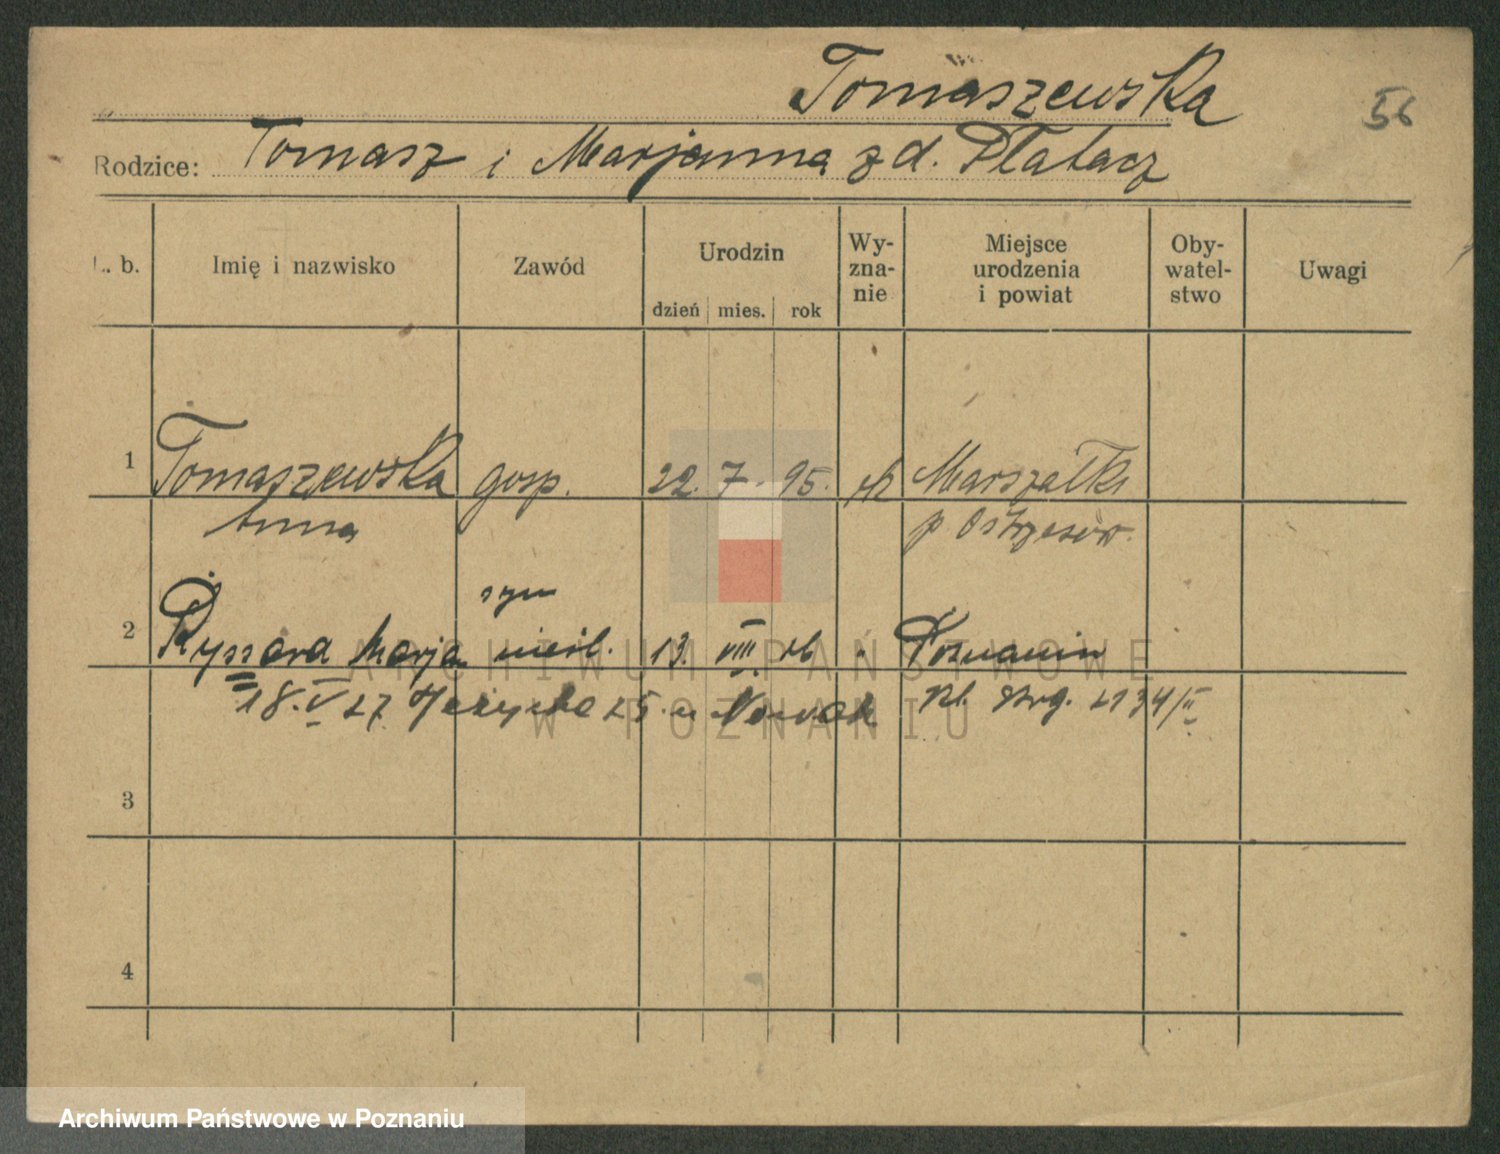 Tomaszewska
56
Rodzice: Tomasz i Marjanna z d. Płatacz
L. b.
Imię i nazwisko
Zawód
Urodzin
dzień mies. rok
Wy-
zna-
nie
Miejsce
urodzenia
i powiat
Oby-
watel-
stwo
Uwagi
1 Tomaszewska gosp. 22. 7. 95. rk Marszałki
Anna p. Ostrzeszów.
syn
2 Ryszard Marja nieśl. 13. VIII 26 " Poznań
18. V 27 Jeżycka 25. u Nowak Kl. 2134/II
3
4
ARCHIWUM PAŃSTWOWE
W POZNANIU
Archiwum Państwowe w Poznaniu